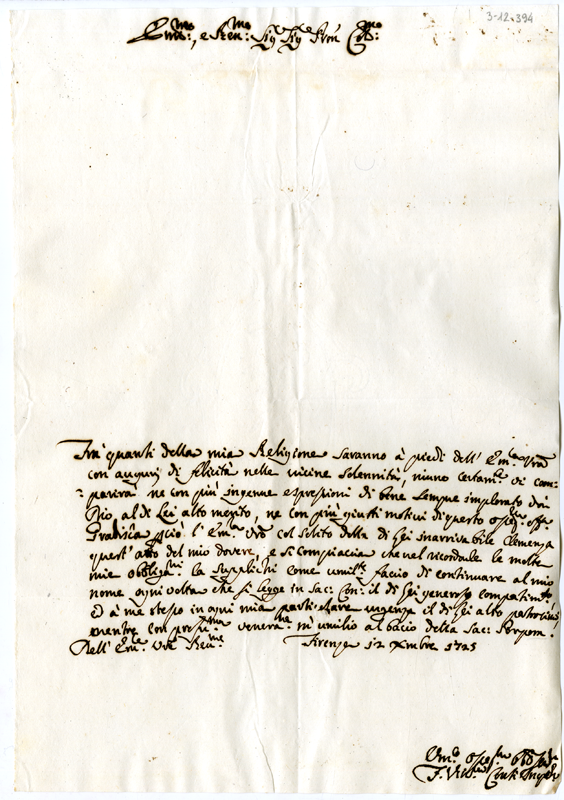 3-12.394
Em:mo, e Reu:mo Sig.r Sig.r Pron Col:mo
Frà quanti della mia Religione saranno à piedi dell' Em:a Vra
con auguri di felicità nelle vicine solennità, niuno certam:te vi com-
:parirà ne con più ingenue espressioni di bene sempre implorato da
Dio al di Lei alto merito, ne con più giusti motivi di questo
Gradisca l' Em:a Vra col solito della di Lei inarrivabile Clemenza
quest' atto del mio dovere, e si compiaccia che nel ricordale le molte
mie obbligaz:ni la supplichi come umil:te faccio di continuare al mio
nome ogni volta che si legge in Sac: Con: il di Lei generoso compatimto,
ed à me stesso in ogni mia particolare urgenza il di Lei alto patrocinio,
mentre con venera:ne m' umilio al bacio della Sac: Porpora.
Dell' Em:a Vra Reu:ma
Firenze 12 Xmbre 1725
Um:o
F.